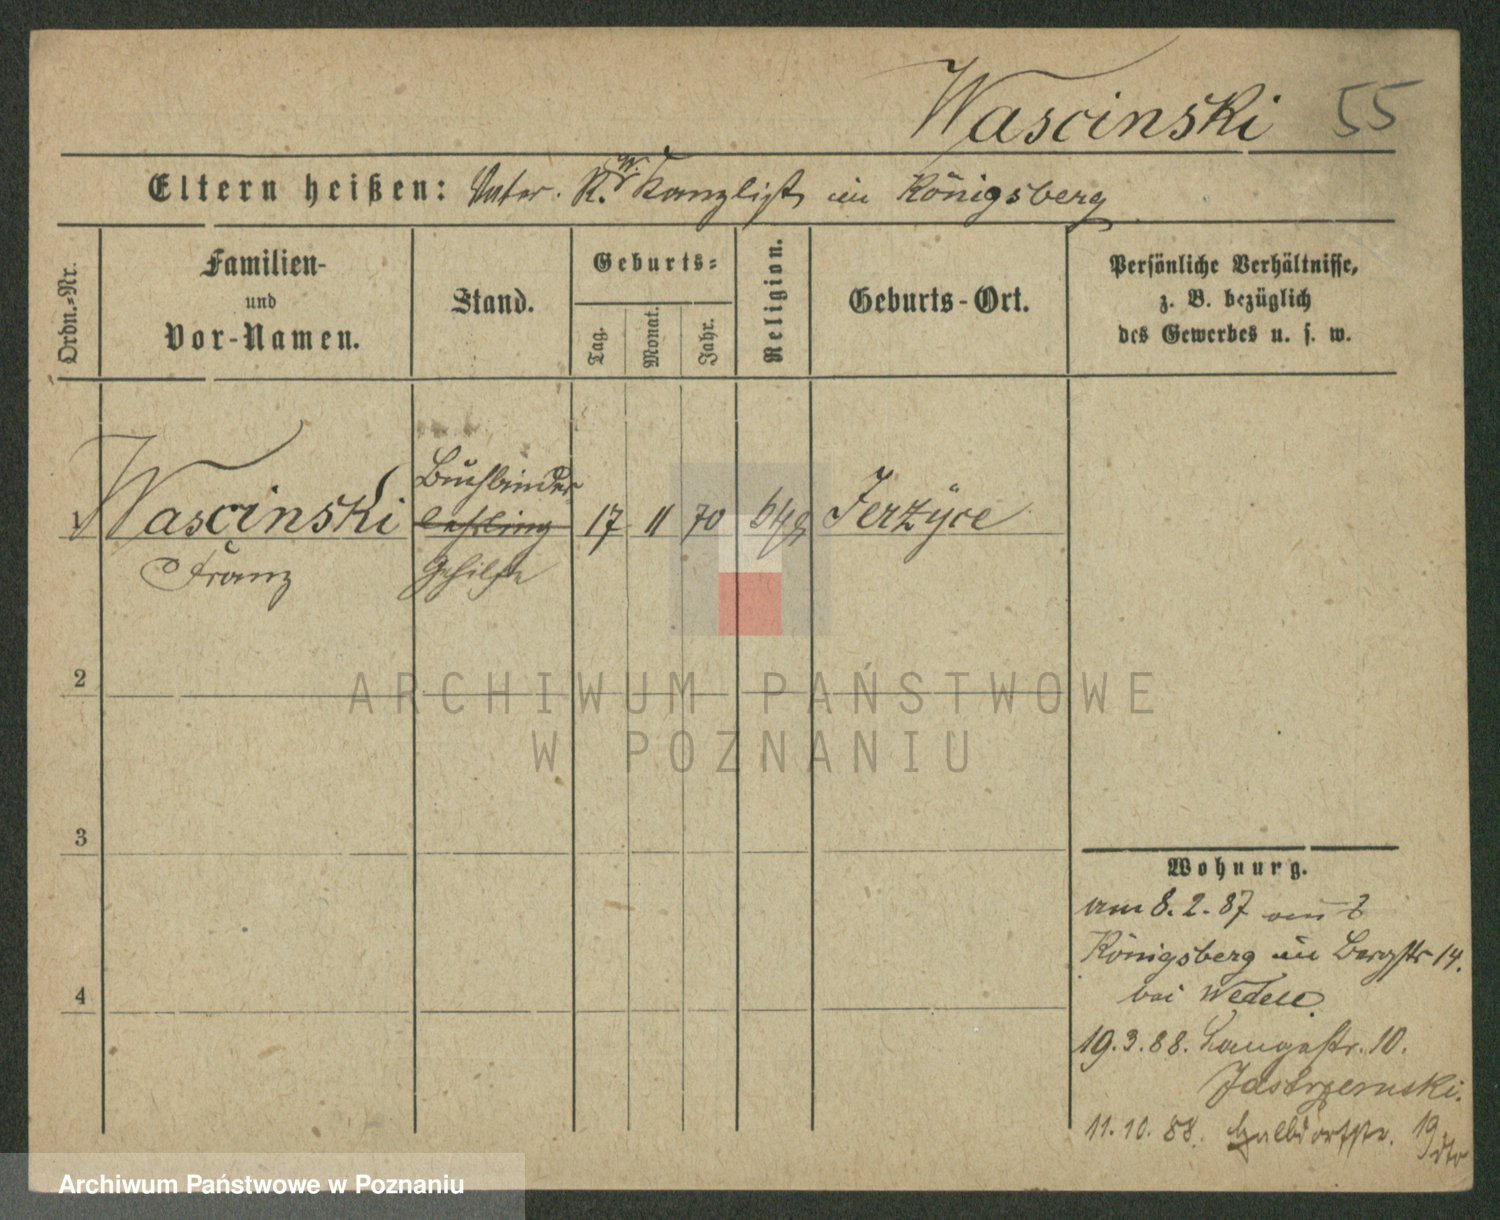 Wascinski 55
Eltern heißen: Vater. K. W. Kanzlist, in Königsberg
Ordn.-Nr.
Familien-
und
Vor-Namen.
Stand.
Geburts-
Tag.
Monat.
Jahr.
Religion.
Geburts-Ort.
Persönliche Verhältnisse,
z. B. bezüglich
des Gewerbes u. s. w.
Buchbinder
Wascinski lehrling 17 11 70 Jerzyce
Franz Gehilfe
2
ARCHIWUM PAŃSTWOWE
W POZNANIU
3
4
Wohnung.
am 8. 2. 87
Königsberg in Bergstr 14.
bei Wedell.
19. 3. 88. Langestr. 10.
Jastrzemski.
11. 10. 88. Halbdorfstr. 19
Archiwum Państwowe w Poznaniu